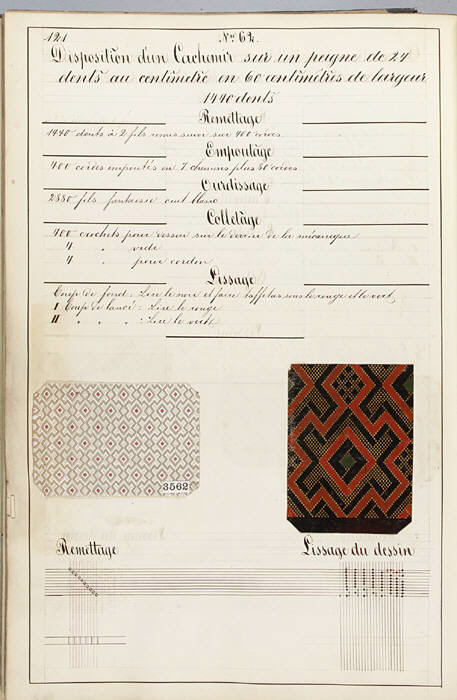 121
No. 62.
Disposition d'un Cachemir sur un peigne de 24
dents au centimètre en 60 centimètres de largeur
1440 dents
Remettage
1440 dents à 2 fils remis suivi sur 400 cordes
Empoutage
400 cordes empoutés en 7 chemins plus 80 cordes
Ourdissage
2880 fils fantaisie cuit blanc
Colletage
400 crochets pour dessin sur le devant de la mécanique
4 " vide
4 " pour cordon
Lissage
Coup de fond : Lire le noir et faire taffetas sous le rouge et le vert,
I Coup de lancé : Lire le rouge
II " " " : Lire le vert
3562
Remettage
Lissage du dessin